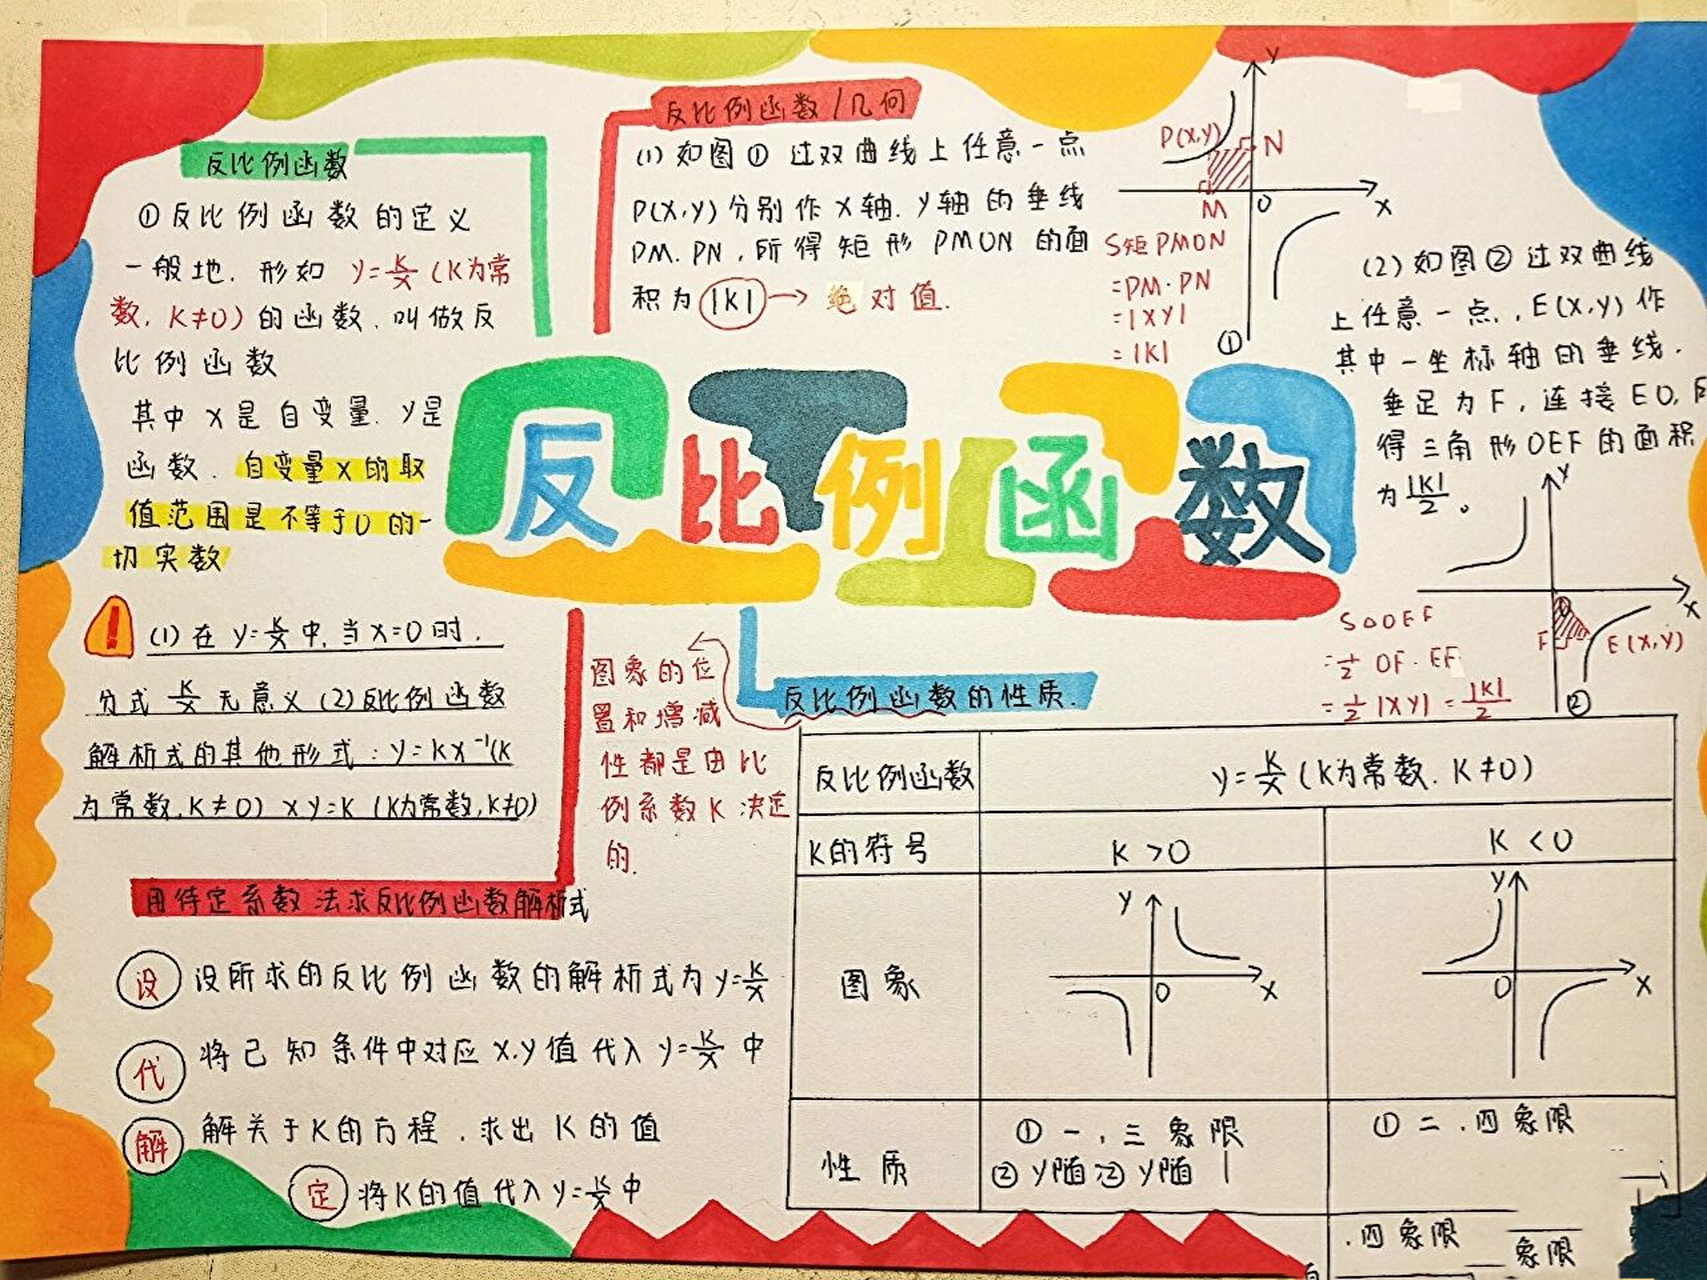 反比例函数
①反比例函数的定义
一般地.形如 y=k/x (K为常
数,K≠0)的函数.叫做反
比例函数
其中 X是自变量.y是
函数.自变量X的取
值范围是不等于0的一
切实数
! (1)在 y=k/x 中,当x=0时,
分式 k/x 无意义 (2)反比例函数
解析式的其他形式:y=Kx⁻¹(K
为常数,K≠0) xy=K (K为常数,K≠0)
反比例函数/几何
(1)如图① 过双曲线上任意一点
P(X,y)分别作X轴.y轴的垂线
PM.PN,所得矩形 PMON 的面
积为|K|→绝对值.
y
P(X,y)
N
M
O
X
S矩PMON
=PM·PN
=|XY|
=|K|
①
(2)如图②过双曲线
上任意一点.,E(X,y)作
其中一坐标轴的垂线.
垂足为F,连接EO,
得三角形OEF的面积
为|K|/2。
y
X
F
E(X,y)
S△OEF
=½ OF·EF
=½|XY|=|K|/2
②
反比例函数
图象的位
置和增减
性都是由比
例系数K决定
的.
反比例函数的性质.
反比例函数
y=k/x (K为常数.K≠0)
K的符号
K>0
K<0
图象
y
O
X
y
O
X
性质
①一,三象限
②y随
y随
①二.四象限
.四象限
象限
用待定系数法求反比例函数解析式
设 设所求的反比例函数的解析式为y=k/x
代 将已知条件中对应X.y值代入y=k/x中
解 解关于K的方程.求出K的值
定 将K的值代入y=k/x中